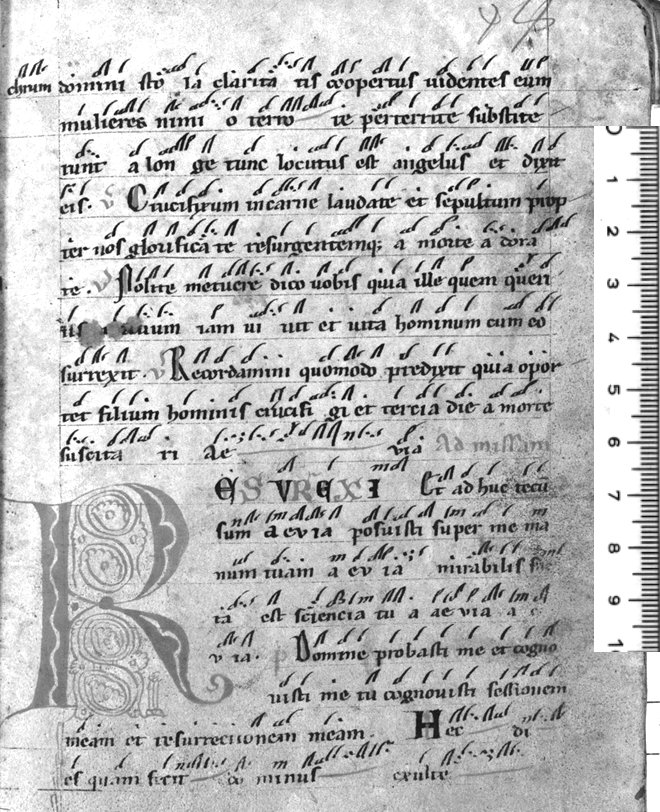 chrum domini sto la clarita tis coopertus uidentes eum
mulieres nimi o terro re perterrite substite
runt a lon ge tunc locutus est angelus et dixit
eis. v Crucifixum in carne laudate et sepultum prop
ter uos glorificate resurgentemq; a morte adora
te. v Nolite metuere dico uobis quia ille quem queri
iam ui uit et uita hominum cum eo
surrexit. v Recordamini quomodo predixit quia opor
tet filium hominis crucifi gi et tercia die a morte
suscita ri Ae via Ad missam
RESVREXI Et ad huc tecu
sum aevia posuisti super me ma
num tuam a ev ia mirabilis
ta est sciencia tu a aevia a e
v ia. p Domine probasti me et cogno
uisti me tu cognouisti sessionem
meam et resurrectionem meam. Hec di
es quam fecit do minus exulte
0
1
2
3
4
5
6
7
8
9
1